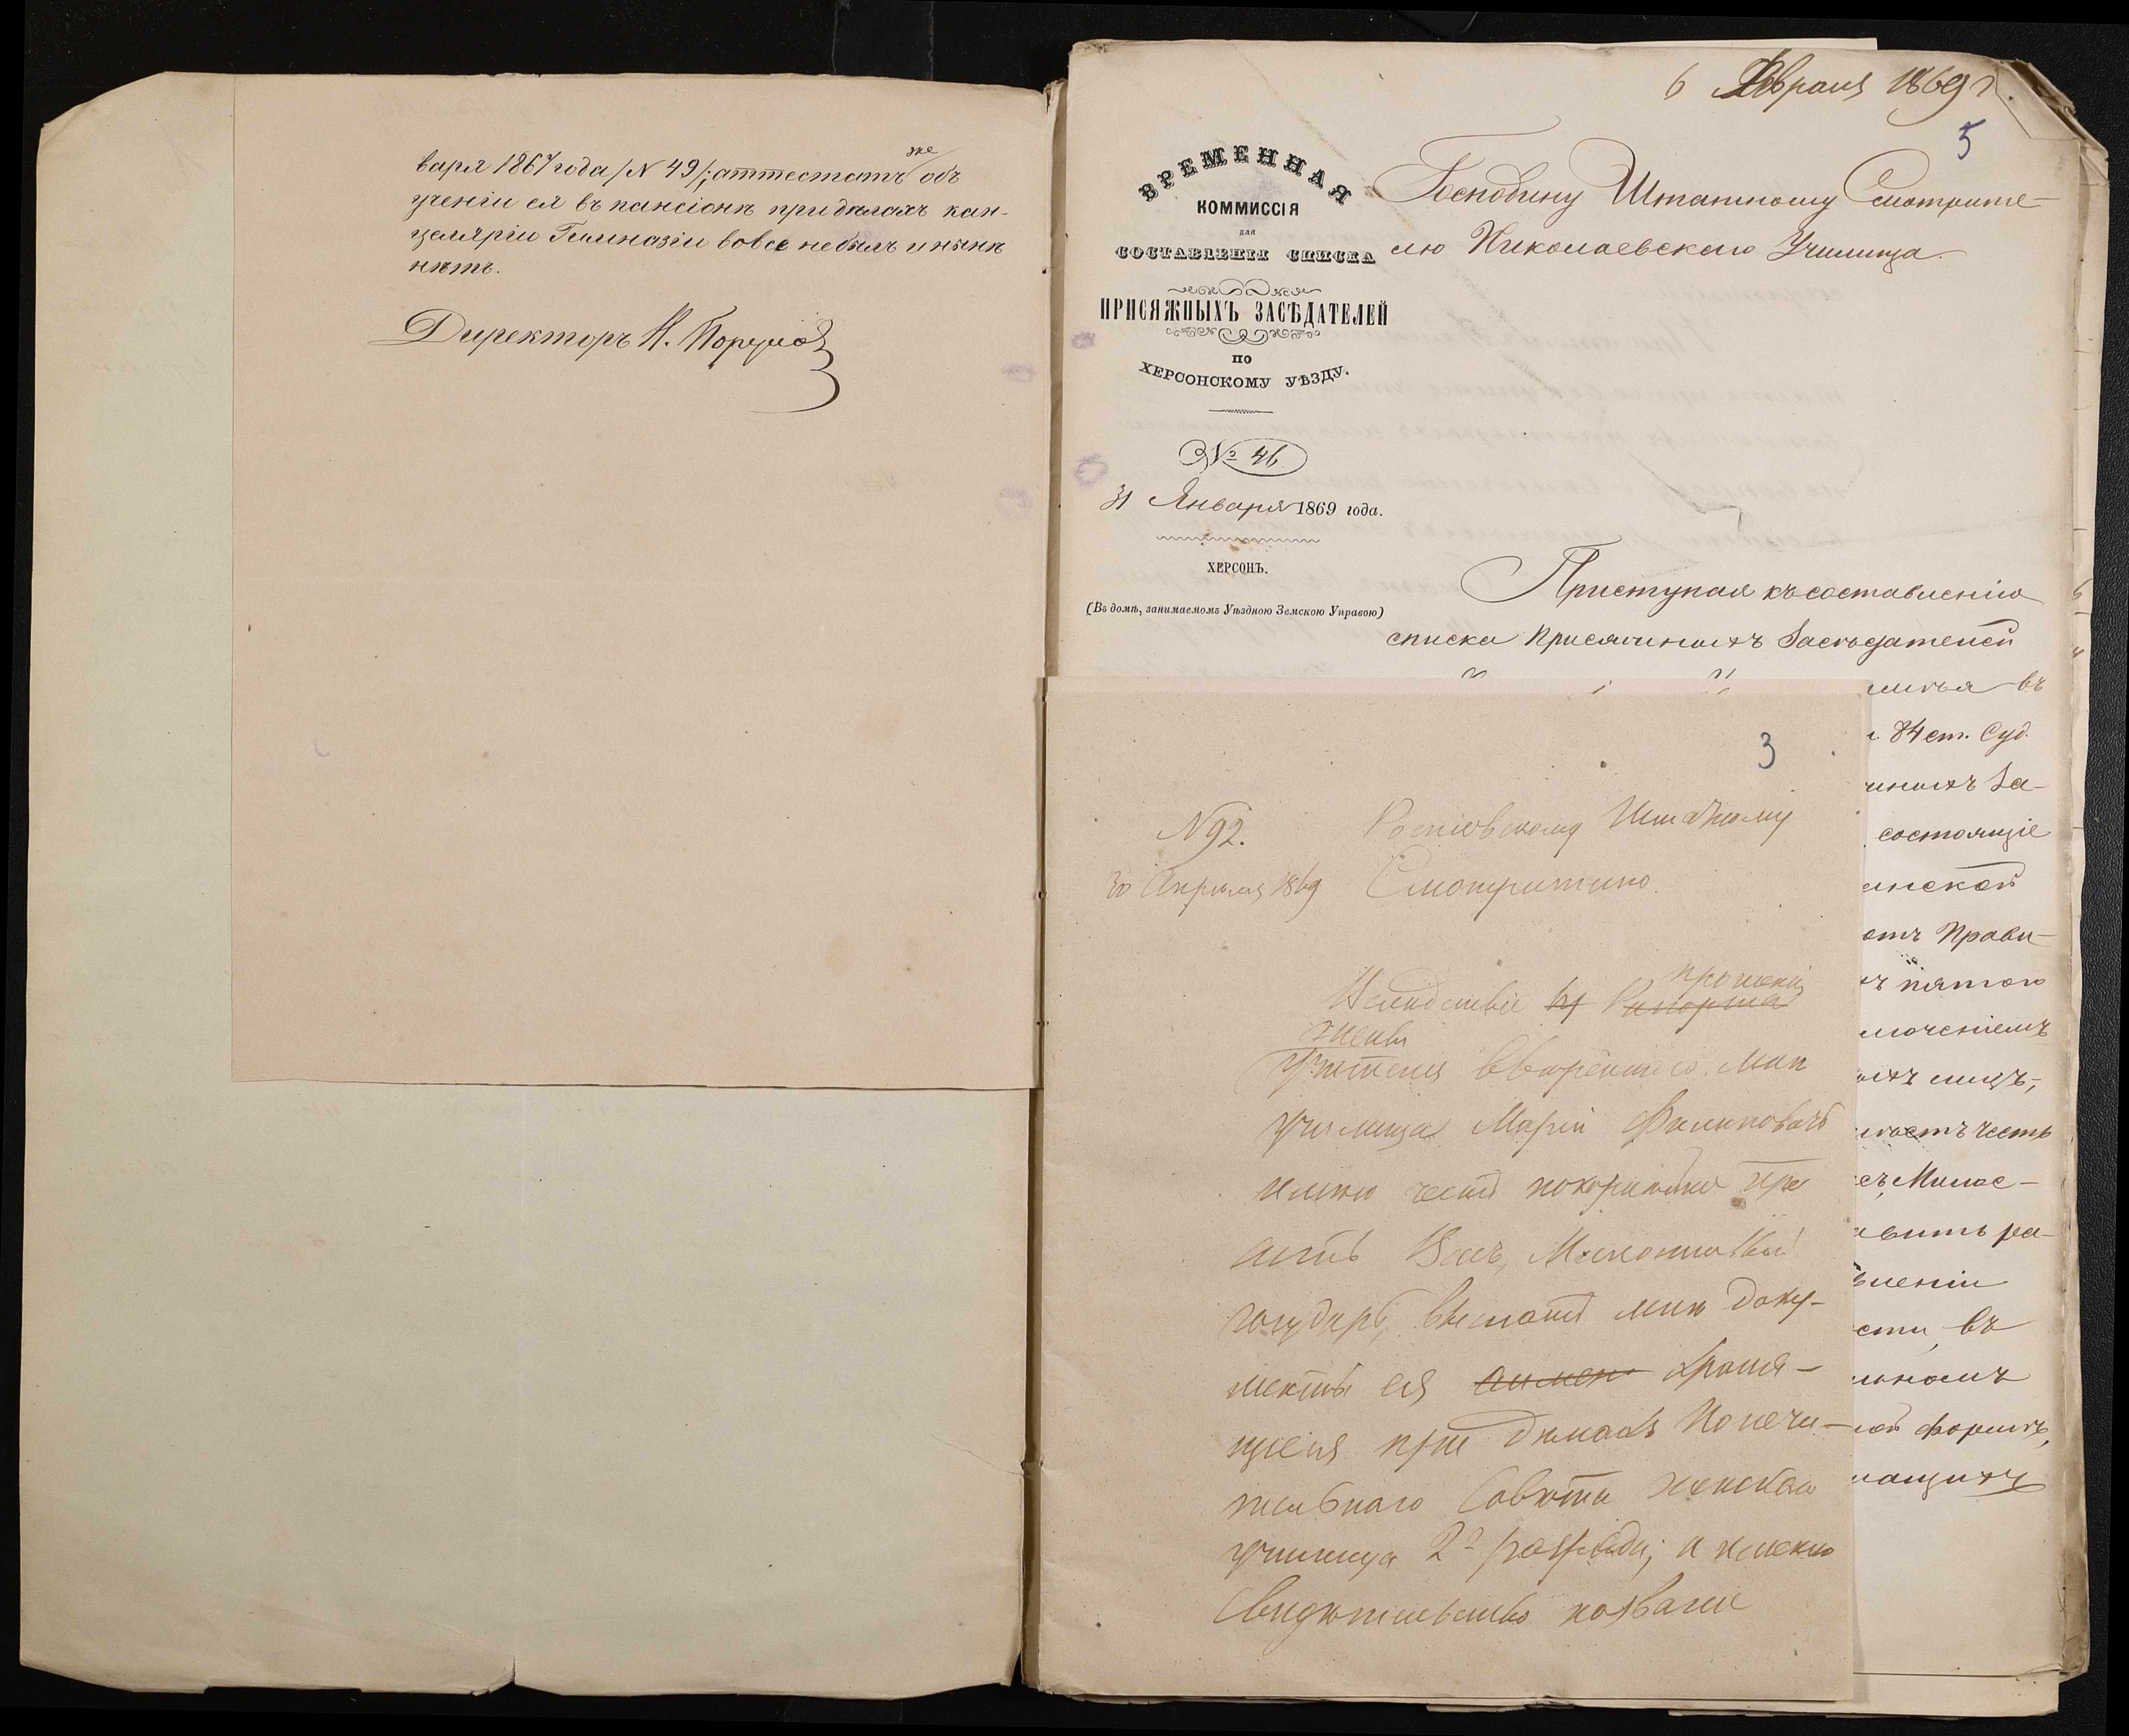 варя 1867 года /N 49/; аттестатъ же объ
ученіи ея въ пансіонѣ при дѣлахъ кан-
целяріи Гимназіи вовсе не былъ и нынѣ
нѣтъ.
Директоръ Н.
6 Февраля 1869 г.
5
ВРЕМЕННАЯ
КОММИССІЯ
для
СОСТАВЛЕНІЯ СПИСКА
ПРИСЯЖНЫХЪ ЗАСѢДАТЕЛЕЙ
ПО
ХЕРСОНСКОМУ УѢЗДУ.
№ 46
31 Января 1869 года.
ХЕРСОНЪ.
(Въ домѣ, занимаемомъ Уѣздною Земскою Управою)
Господину Штатному Смотрите-
лю Николаевскаго Училища.
Приступая къ составленію
списка Присяжныхъ Засѣдателей
въ
84 ст. Суд.
За-
состоящіе
Прави-
пятою
лицъ,
честь
Милос-
ра-
въ
формѣ,
3
N 92.
30 Апрѣля 1869
Штатному
Смотрителю.
прошенія
Вслѣдствіе Рапорта
жены
Учителя ввѣреннаго мнѣ
училища Маріи
имѣю честь покорнѣйше про
сить Васъ, Милостивый
государь, выслать мнѣ доку-
менты ея храня-
щіеся при дѣлахъ Попечи-
тельнаго Совѣта женскаго
училища 2го разряда; а именно
Свидѣтельство